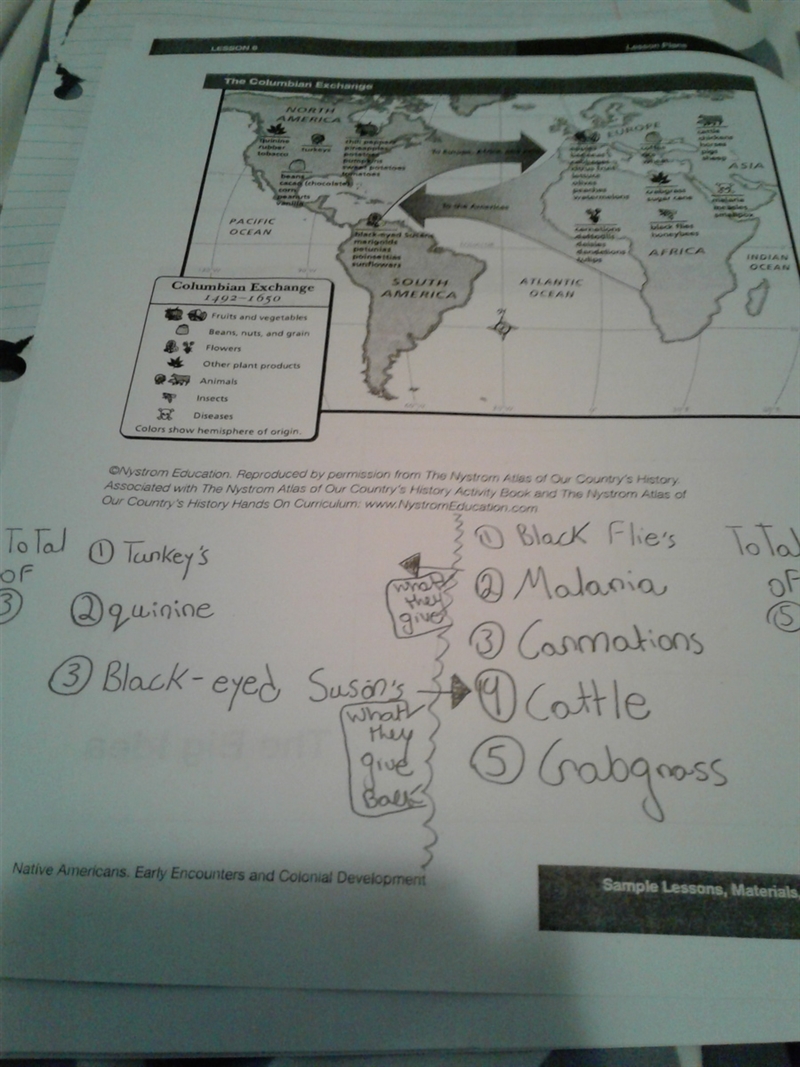 LESSON 8
Lesson Plans
The Columbian Exchange
NORTH
AMERICA
quinine
rubber
tobacco
turkeys
chili peppers
pineapples
potatoes
pumpkins
sweet potatoes
tomatoes
beans
cacao (chocolate)
corn
peanuts
vanilla
To Europe, Africa, and Asia
To the Americas
EUROPE
ASIA
cattle
chickens
horses
pigs
sheep
citrus fruit
lettuce
olives
peaches
watermelons
crabgrass
sugar cane
malaria
measles
smallpox
carnations
daffodils
daisies
dandelions
tulips
black flies
honeybees
AFRICA
INDIAN
OCEAN
PACIFIC
OCEAN
black-eyed Susans
marigolds
petunias
poinsettias
sunflowers
SOUTH
AMERICA
ATLANTIC
OCEAN
Columbian Exchange
1492–1650
Fruits and vegetables
Beans, nuts, and grain
Flowers
Other plant products
Animals
Insects
Diseases
Colors show hemisphere of origin.
©Nystrom Education. Reproduced by permission from The Nystrom Atlas of Our Country's History.
Associated with The Nystrom Atlas of Our Country's History Activity Book and The Nystrom Atlas of
Our Country's History Hands On Curriculum: www.NystromEducation.com
ToTal
OF
3
1 Turkey's
2 quinine
3 Black-eyed Suson's
what
they
give
what
they
give
Back
1 Black Flie's
2 Malaria
3 Carnations
4 Cattle
5 Crabgrass
ToTal
OF
5
The Big Idea
Native Americans, Early Encounters and Colonial Development
Sample Lessons, Materials,